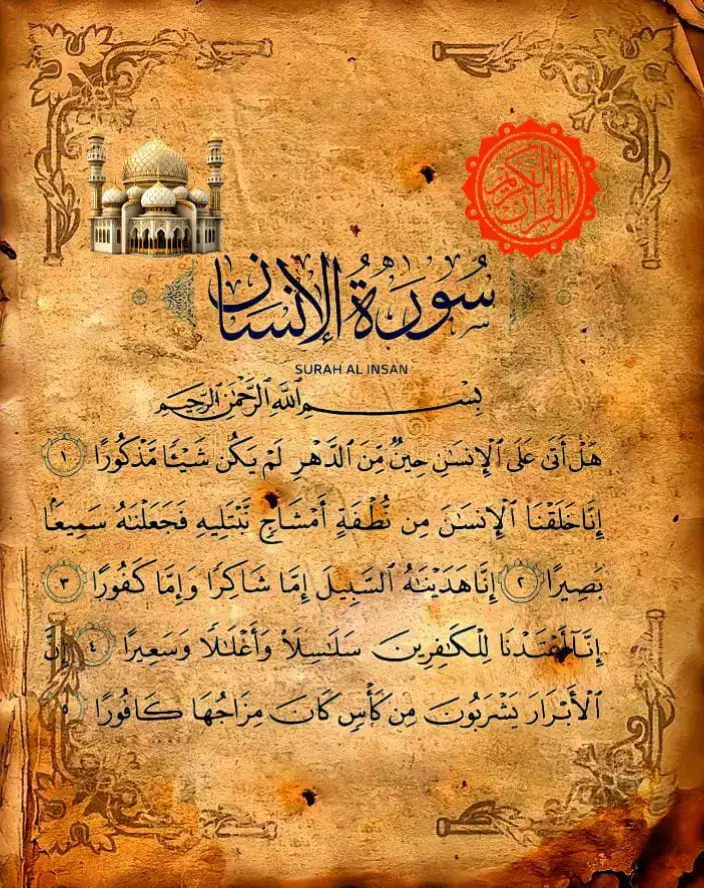 القرآن الكريم
سُورَةُ الإنسان
SURAH AL INSAN
بِسْمِ ٱللَّهِ ٱلرَّحْمَٰنِ ٱلرَّحِيمِ
هَلْ أَتَىٰ عَلَى ٱلْإِنسَٰنِ حِينٌ مِّنَ ٱلدَّهْرِ لَمْ يَكُن شَيْـًٔا مَّذْكُورًا ١
إِنَّا خَلَقْنَا ٱلْإِنسَٰنَ مِن نُّطْفَةٍ أَمْشَاجٍ نَّبْتَلِيهِ فَجَعَلْنَٰهُ سَمِيعًۢا
بَصِيرًا ٢ إِنَّا هَدَيْنَٰهُ ٱلسَّبِيلَ إِمَّا شَاكِرًا وَإِمَّا كَفُورًا ٣
إِنَّآ أَعْتَدْنَا لِلْكَٰفِرِينَ سَلَٰسِلَا۟ وَأَغْلَٰلًا وَسَعِيرًا ٤ إِنَّ
ٱلْأَبْرَارَ يَشْرَبُونَ مِن كَأْسٍ كَانَ مِزَاجُهَا كَافُورًا ٥